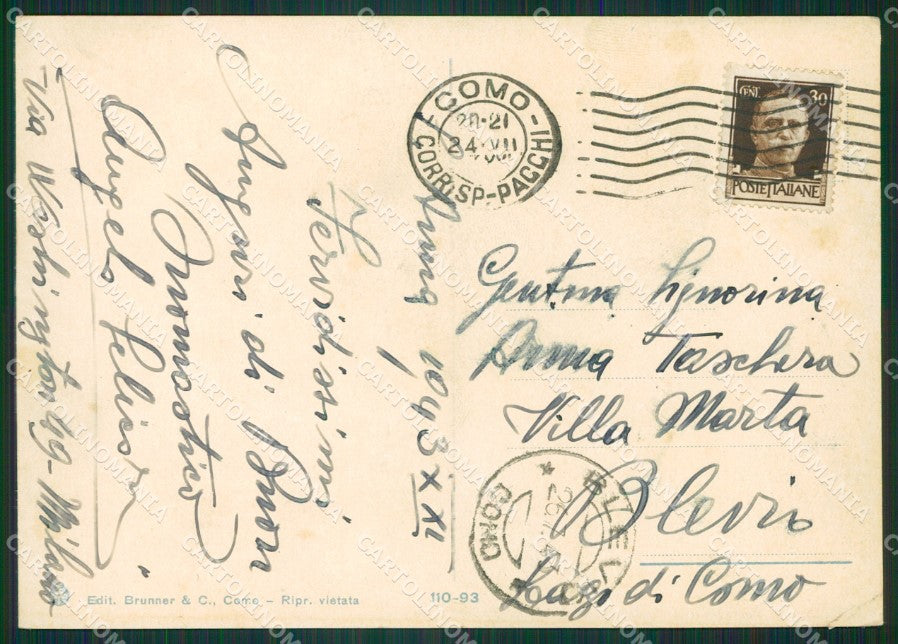 COMO
20-21
24 VII
CORRISP-PACCHI
CENT. 30
POSTE ITALIANE
1943 XXI
Fervidissimi
Auguri di Buon
Onomastico
Angelo
Via Washington 49 - Milano
Gent.ma Signorina
Anna Taschera
Villa Marta
Blevio
Lago di Como
BLEVIO
COMO
Edit. Brunner & C., Como - Ripr. vietata
110-93
CARTOLINOMANIA